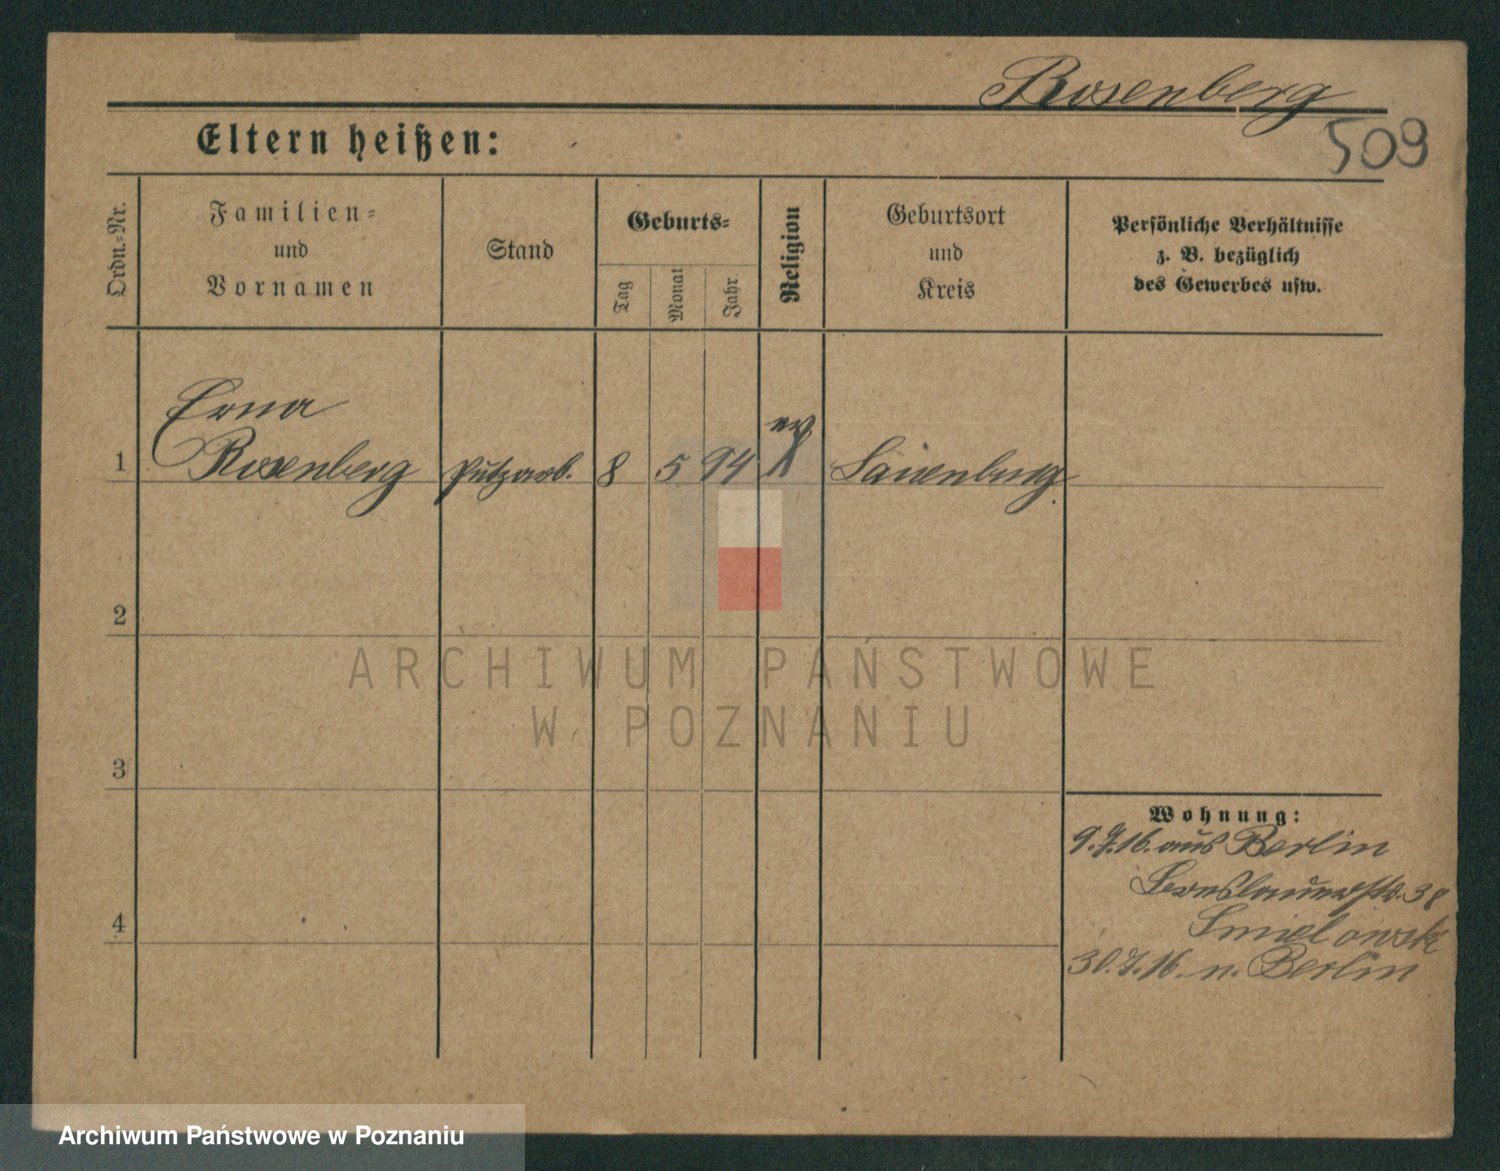 Rosenberg
509
Eltern heißen:
Ordn.-Nr.
Familien-
und
Vornamen
Stand
Geburts-
Tag
Monat
Jahr
Religion
Geburtsort
und
Kreis
Persönliche Verhältnisse
z. B. bezüglich
des Gewerbes usw.
Erna
1 Rosenberg Putzarb. 8 5 94 ev
2
3
4
Wohnung:
9.7.16. aus Berlin
38
30.7.16. n. Berlin
ARCHIWUM PAŃSTWOWE
W POZNANIU
Archiwum Państwowe w Poznaniu